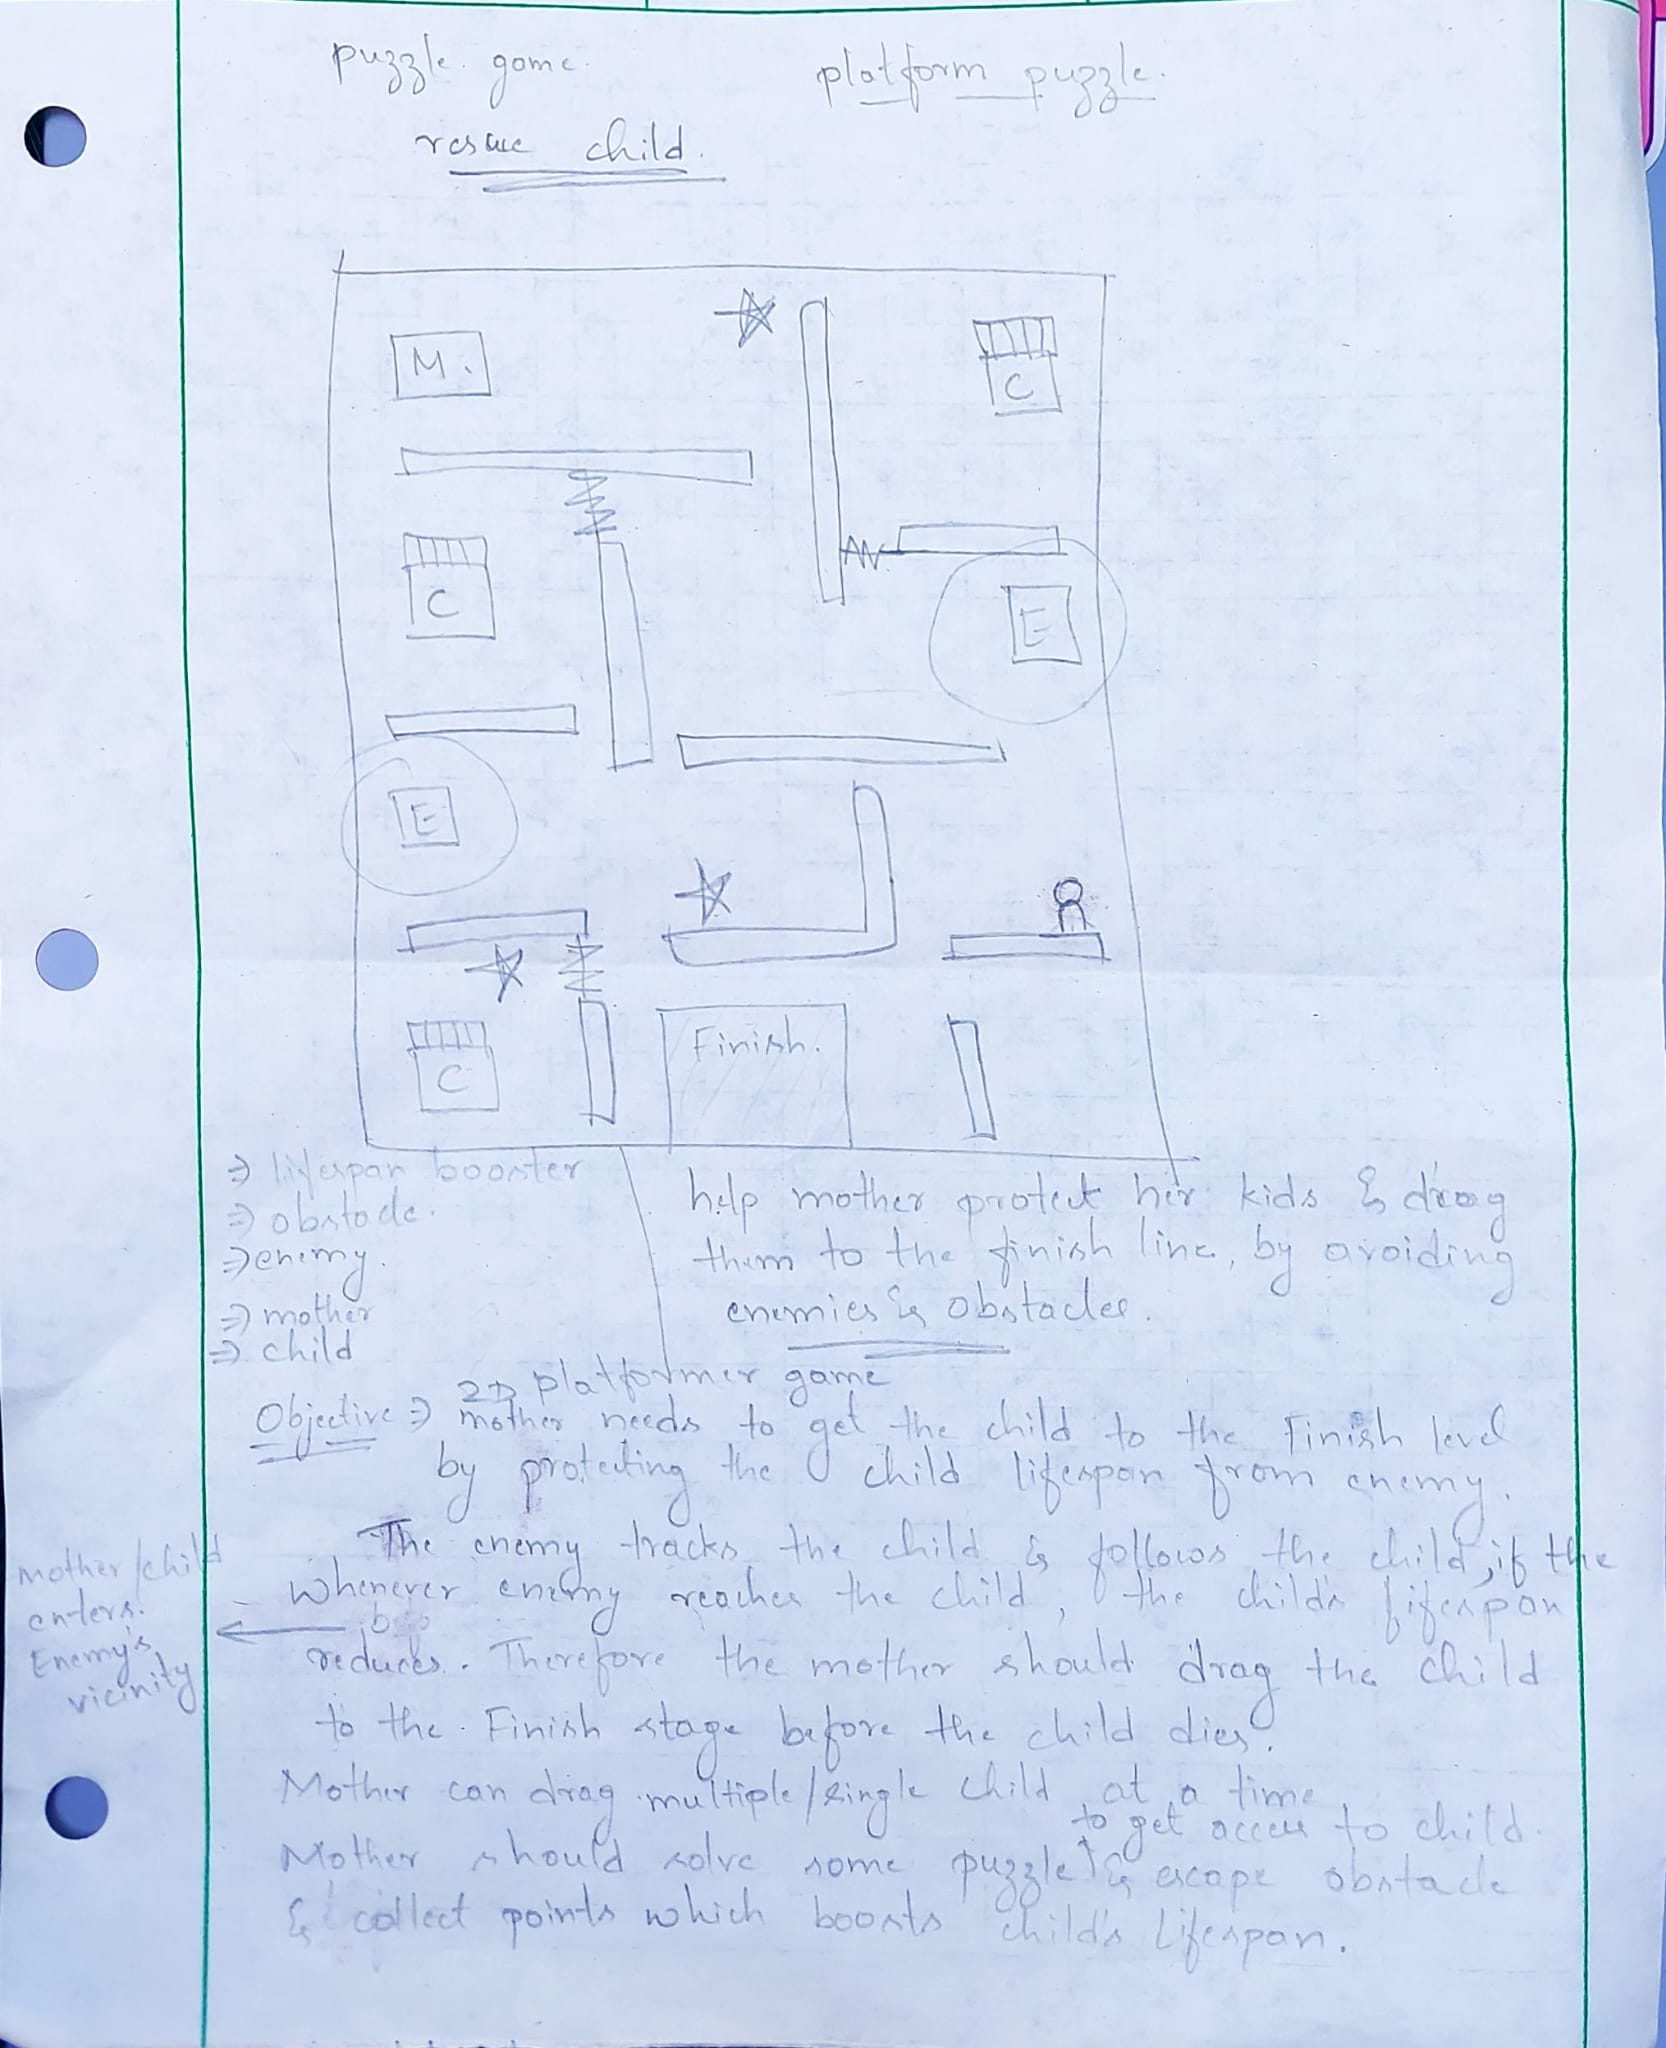 puzzle game.
platform puzzle.
rescue child.
M.
C
C
E
E
Finish.
C
⇒ lifespan booster
⇒ obstacle.
⇒ enemy.
⇒ mother
⇒ child
help mother protect her kids & drag
them to the finish line, by avoiding
enemies & obstacles.
2D platformer game
Objective ⇒ mother needs to get the child to the Finish level
by protecting the child lifespan from enemy.
The enemy tracks the child & follows the child, if the
mother/child
enters
Enemy's
vicinity
Whenever enemy reaches the child, the child's lifespan
reduces. Therefore the mother should drag the child
to the Finish stage before the child dies.
Mother can drag multiple/single child at a time
to get access to child.
Mother should solve some puzzle & escape obstacle
& collect points which boosts child's Lifespan.